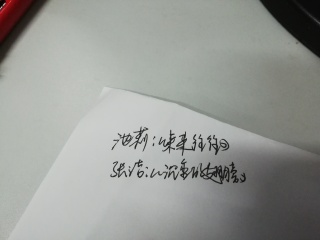 池莉:《来来往往》
张洁:《沉重的翅膀》